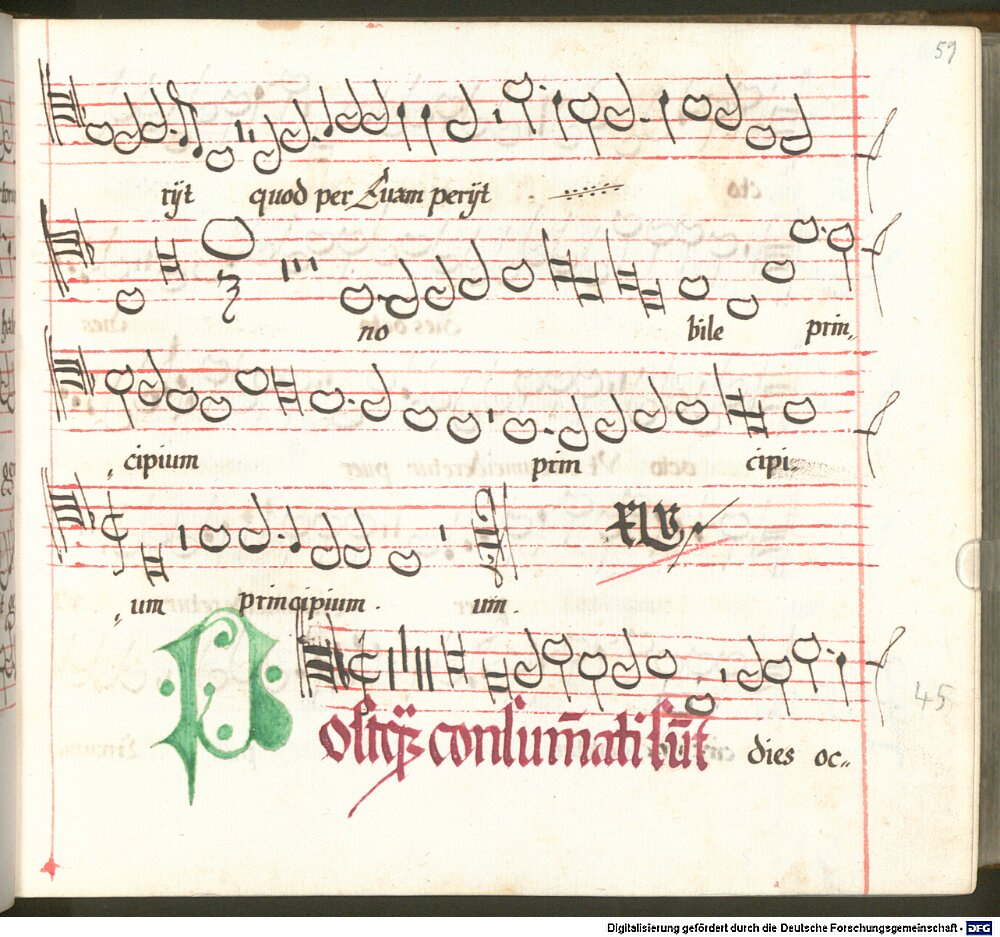 59
rijt quod per Euam perijt
no bile prin,,
,,cipium prin cipi.
XLV
,,um principium . um .
Postq̃ consum̃ati sũt dies oc,,
45
Digitalisierung gefördert durch die Deutsche Forschungsgemeinschaft - DFG